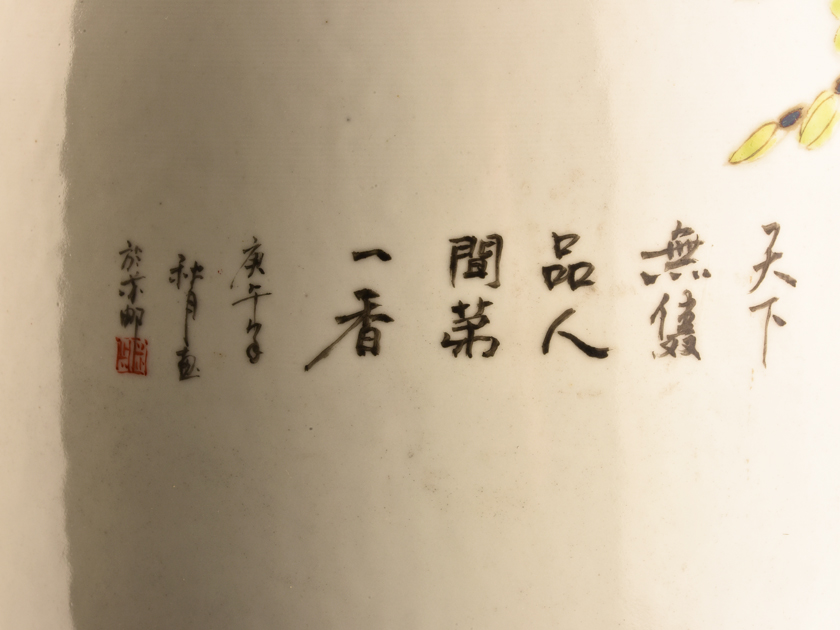 天下
無雙
品人
間第
一香
庚午年
秋月畫
於京邮